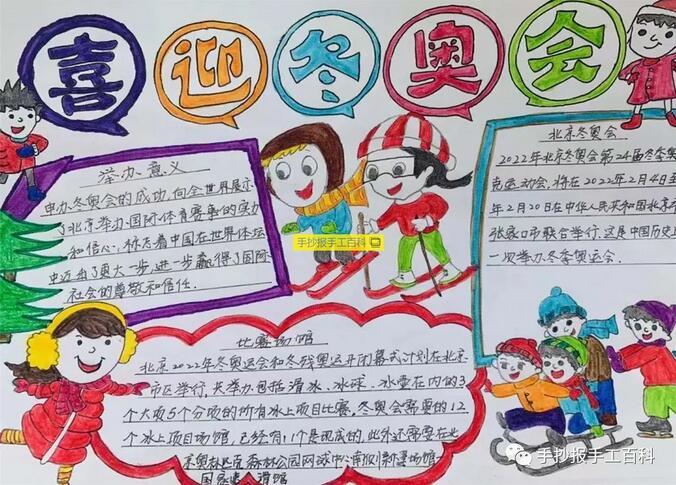 喜迎冬奥会
举办意义
申办冬奥会的成功,向全世界展示
了北京举办国际体育赛事的实力
和信心,标志着中国在世界体坛
中迈出了更大一步,进一步赢得了国际
社会的尊敬和信任.
北京冬奥会
2022年北京冬奥会第24届冬季奥
克运动会,将在2022年2月4日至
年2月20日在中华人民共和国北京
张家口市联合举行.这是中国历史上
一次举办冬季奥运会.
手抄报手工百科
比赛场馆
北京2022年冬奥运会和冬残奥运开闭幕式计划在北京
市区举行,共举办包括滑冰、冰球、冰壶在内的3
个大项5个分项的所有冰上项目比赛,冬奥会需要的12
个冰上项目场馆,已经有11个是现成的,此外还需要在北
京奥林匹克森林公园网球中心南侧新建场馆一
国家速滑馆
手抄报手工百科